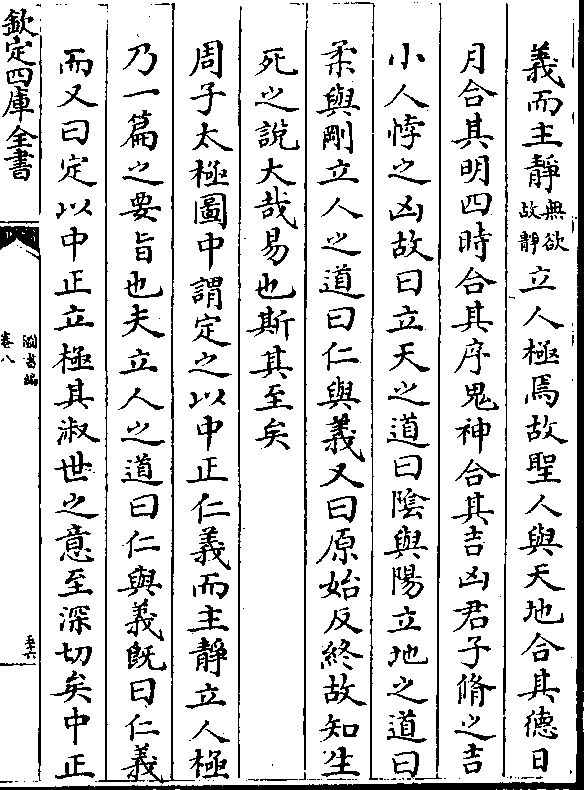 義而主靜無欲故靜立人極焉故聖人與天地合其德日
月合其明四時合其序鬼神合其吉凶君子脩之吉
小人悖之凶故曰立天之道曰陰與陽立地之道曰
柔與剛立人之道曰仁與義又曰原始反終故知生
死之說大哉易也斯其至矣
周子太極圖中謂定之以中正仁義而主靜立人極
乃一篇之要旨也夫立人之道曰仁與義旣曰仁義
而又曰定以中正立極其淑世之意至深切矣中正
欽定四庫全書
卷八